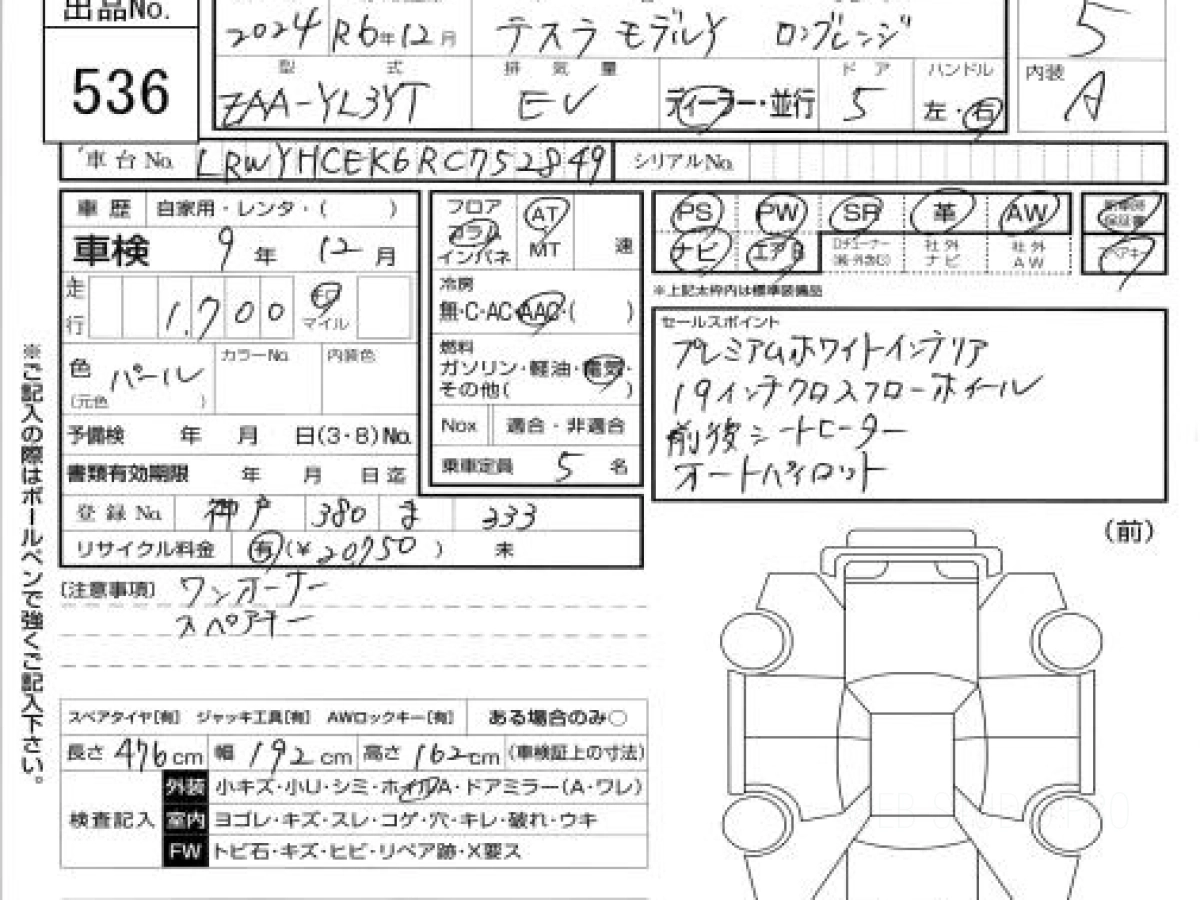 出品No.
536
2024 R6年12月 テスラ モデルY ロングレンジ 5
型式 排気量 ドア ハンドル 内装
ZAA-YL3YT EV ディーラー・並行 5 左・右 A
車台No. LRWYHCEK6RC752849 シリアルNo.
車歴 自家用・レンタ・( )
車検 9年 12月
走行 1,700 キロ マイル
色 パール カラーNo. 内装色
(元色 )
予備検 年 月 日(3・8)No.
書類有効期限 年 月 日迄
登録No. 神戸 380 ま 333
リサイクル料金 有(¥ 20,750 ) 未
フロア AT
コラム
インパネ MT 速
冷房
無・C・AC・AAC・( )
燃料
ガソリン・軽油・電気・
その他( )
Nox 適合・非適合
乗車定員 5 名
PS PW SR 革 AW 保証書
ナビ エアB 社外ナビ 社外AW スペアキー
※上記太枠内は標準装備品
セールスポイント
プレミアムホワイトインテリア
19インチクロスフローホイール
前後シートヒーター
オートパイロット
(前)
[注意事項] ワンオーナー
スペアキー
スペアタイヤ[有] ジャッキ工具[有] AWロックキー[有] ある場合のみ○
長さ 476cm 幅 192cm 高さ 162cm (車検証上の寸法)
検査記入
外装 小キズ・小U・シミ・ホイルA・ドアミラー(A・ワレ)
室内 ヨゴレ・キズ・スレ・コゲ・穴・キレ・破れ・ウキ
FW トビ石・キズ・ヒビ・リペア跡・X要ス
※ご記入の際はボールペンで強くご記入下さい。